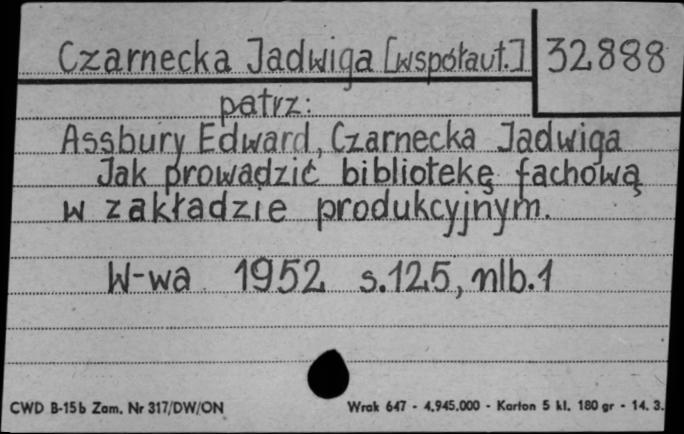 Czarnecka Jadwiga [współaut.] 32888
patrz:
Assbury Edward, Czarnecka Jadwiga
Jak prowadzić bibliotekę fachową
w zakładzie produkcyjnym.
W-wa 1952 s.125, nlb.1
CWD B-15b Zam. Nr 317/DW/ON Wrak 647 - 4.945.000 - Karton 5 kl. 180 gr - 14. 3.